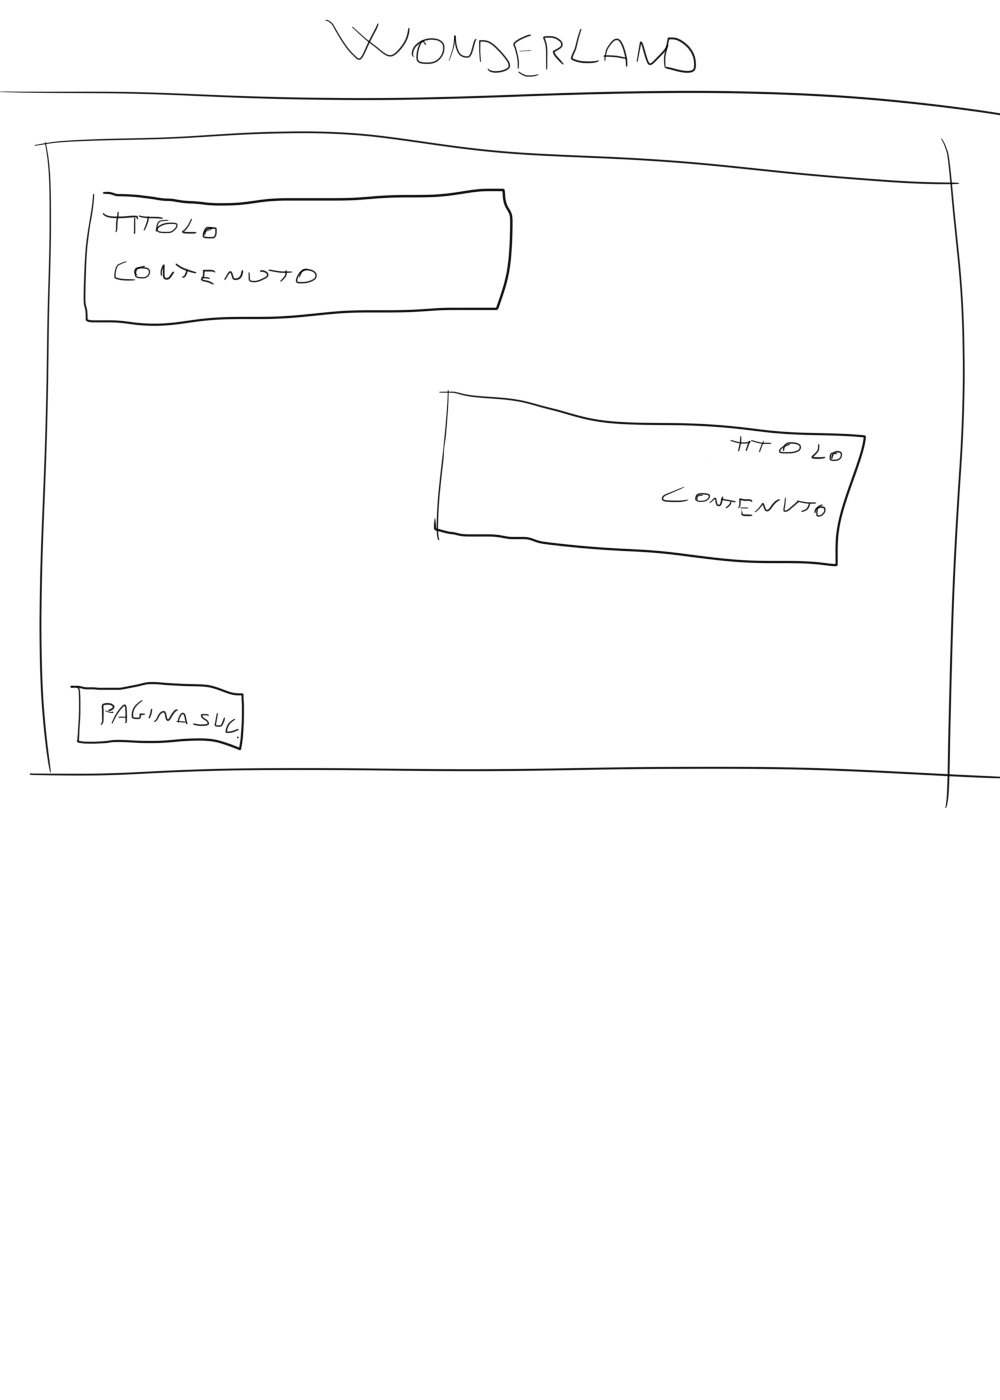 WONDERLAND
TITOLO
CONTENUTO
TITOLO
CONTENUTO
PAGINA SUC.